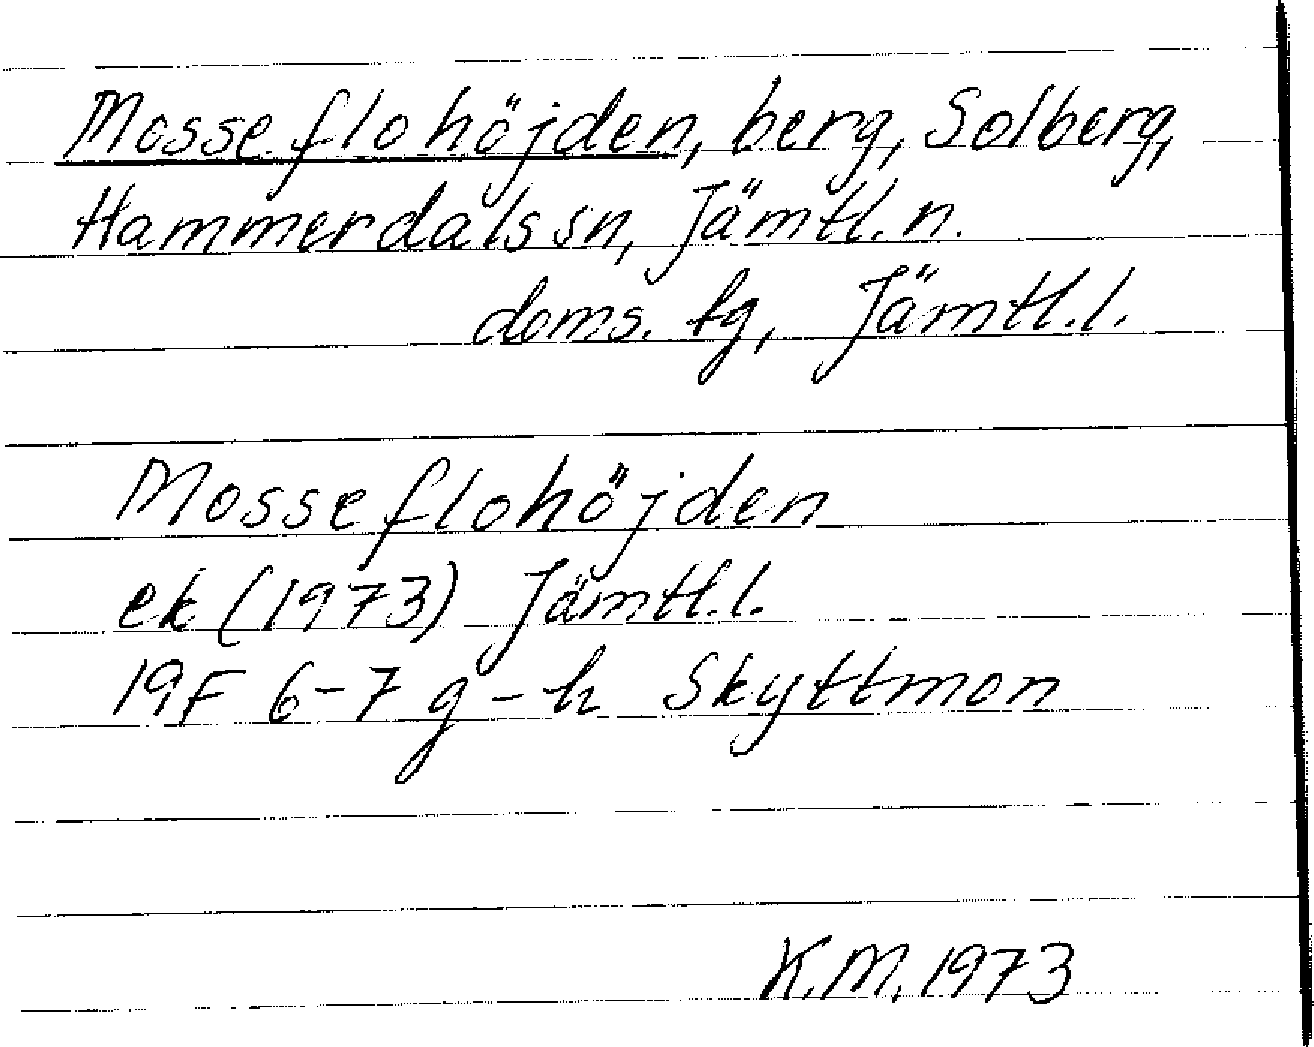 Mosseflohöjden, berg, Solberg,
Hammerdals sn, Jämtl. n.
doms. tg, Jämtl. l.
Mosseflohöjden
ek (1973) Jämtl. l.
19F 6-7 g-h Skyttmon
K.M. 1973